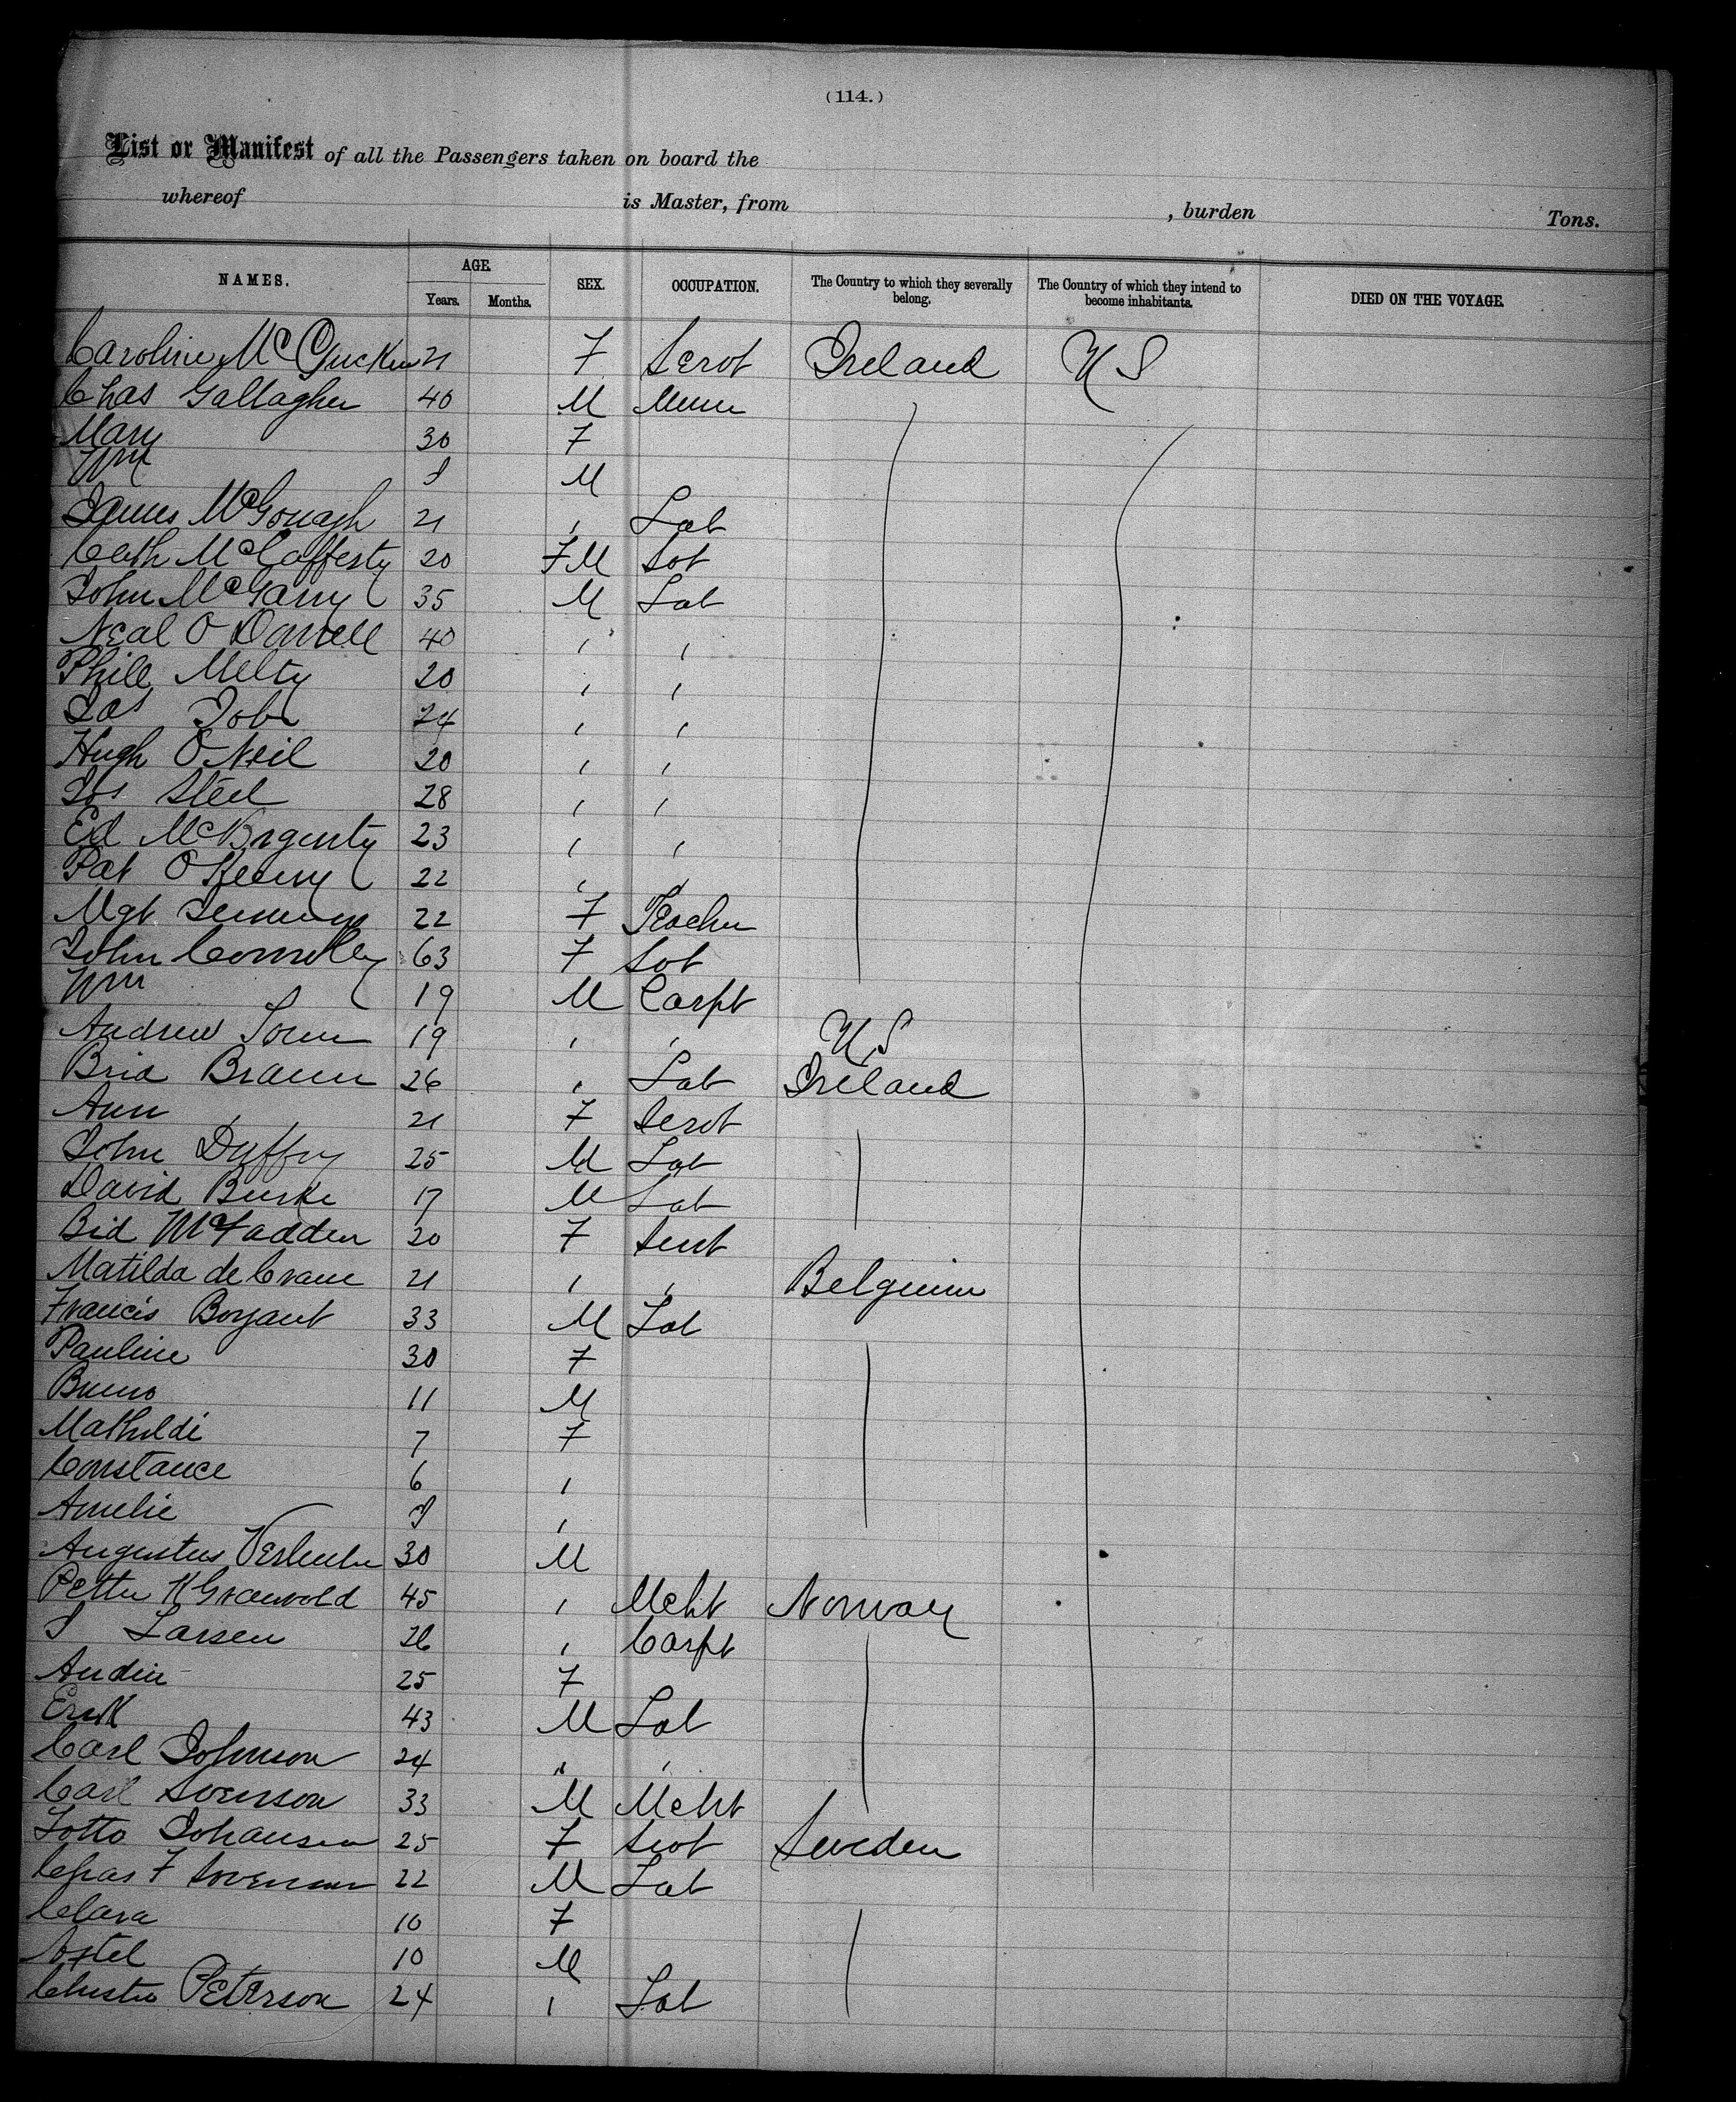 (114.)
List or Manifest of all the Passengers taken on board the
whereof is Master, from , burden Tons.
NAMES. AGE. Years. Months. SEX. OCCUPATION. The Country to which they severally belong. The Country of which they intend to become inhabitants. DIED ON THE VOYAGE.
Caroline McGucken 21 F Servt Ireland U S
Chas Gallagher 40 M
Mary 30 F
Wm M
James McGonagh 21 , Lab
Cath McCafferty 20 F M Svt
John McGarry 35 M Lab
Neal O Donnell 40 , ,
Phill Melty 20 , ,
Jas 24 , ,
Hugh O Neil 20 , ,
Jos Steel 28 , ,
Ed 23 , ,
Pat 22 , ,
Mgt 22 F Teacher
John Connolly 63 F Svt
Wm 19 M Carpt
Andrew 19 , , U S
Brid 26 , Lab Ireland
Ann 21 F Servt
John Duffy 25 M Lab
David Burke 17 M Lab
Bid McFadden 20 F Servt
Matilda de Crane 21 , , Belgium
Francis Boyant 33 M Lab
Pauline 30 F
Bruno 11 M
Mathilde 7 F
Constance 6 ,
Amelie ,
Augustus 30 M
45 , Mcht Norway
Larsen 26 , Carpt
25 F
Erik 43 M Lab
Carl Johnson 24 " ,
Carl Svensson 33 M Mcht
Lotta Johansen 25 F Servt Sweden
Chas F Svensson 22 M Lab
Clara 10 F
10 M
Peterson 24 , Lab